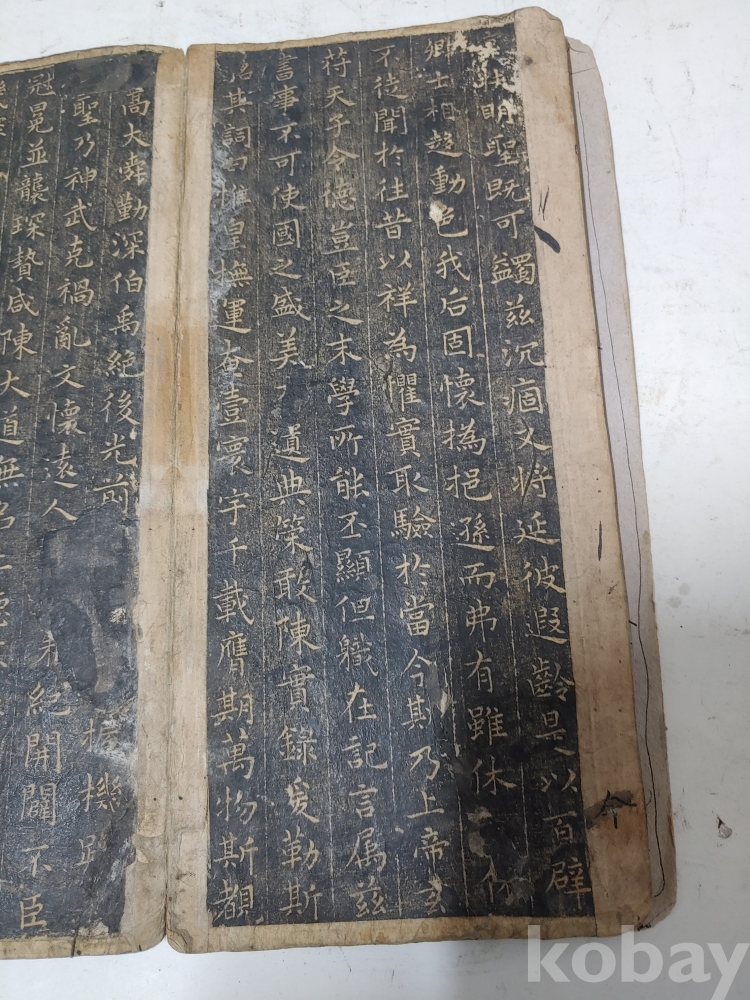 明聖既可蠲茲沉痼又將延彼遐齡是以百辟
卿士相趍動色我后固懷撝挹遜而弗有雖休休
不徒聞於往昔以祥為懼實取驗於當今其乃上帝玄
苻天子令德豈臣之末學所能丕顯但職在記言属茲
書事不可使國之盛美遺典策敢陳實錄爰勒斯
銘其詞曰惟皇撫運奄壹寰宇千載膺期萬物斯覩
高大舜勤深伯禹絕後光前握機蹈
聖乃神武克禍亂文懷遠人未紀開闢不臣
冠冕並襲琛贄咸陳大道無名上德
kobay